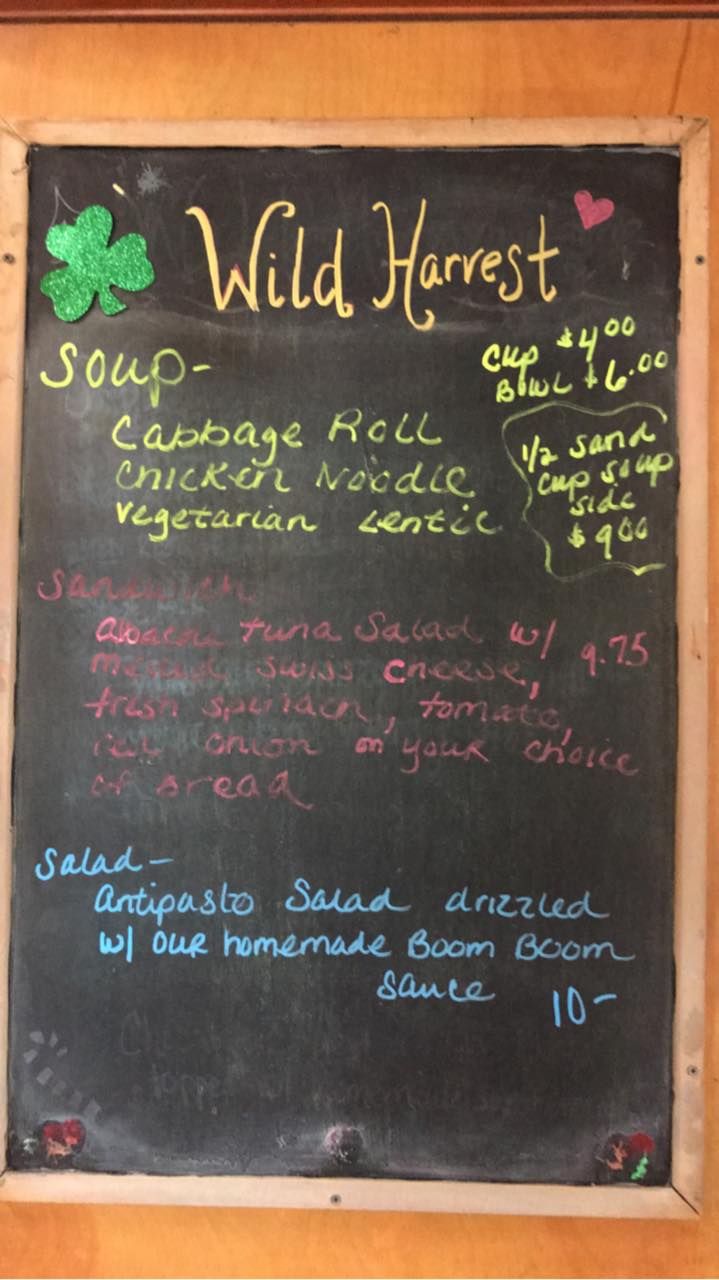 Wild Harvest
Soup-
Cup $4.00
Bowl $6.00
Cabbage Roll
Chicken Noodle
Vegetarian Lentil
1/2 sand
cup soup
side
$9.00
Sandwich
tuna Salad w/ 9.75
swiss cheese,
fresh spinach, tomato,
red onion on your choice
of bread
Salad-
Antipasto Salad drizzled
w/ our homemade Boom Boom
sauce 10-